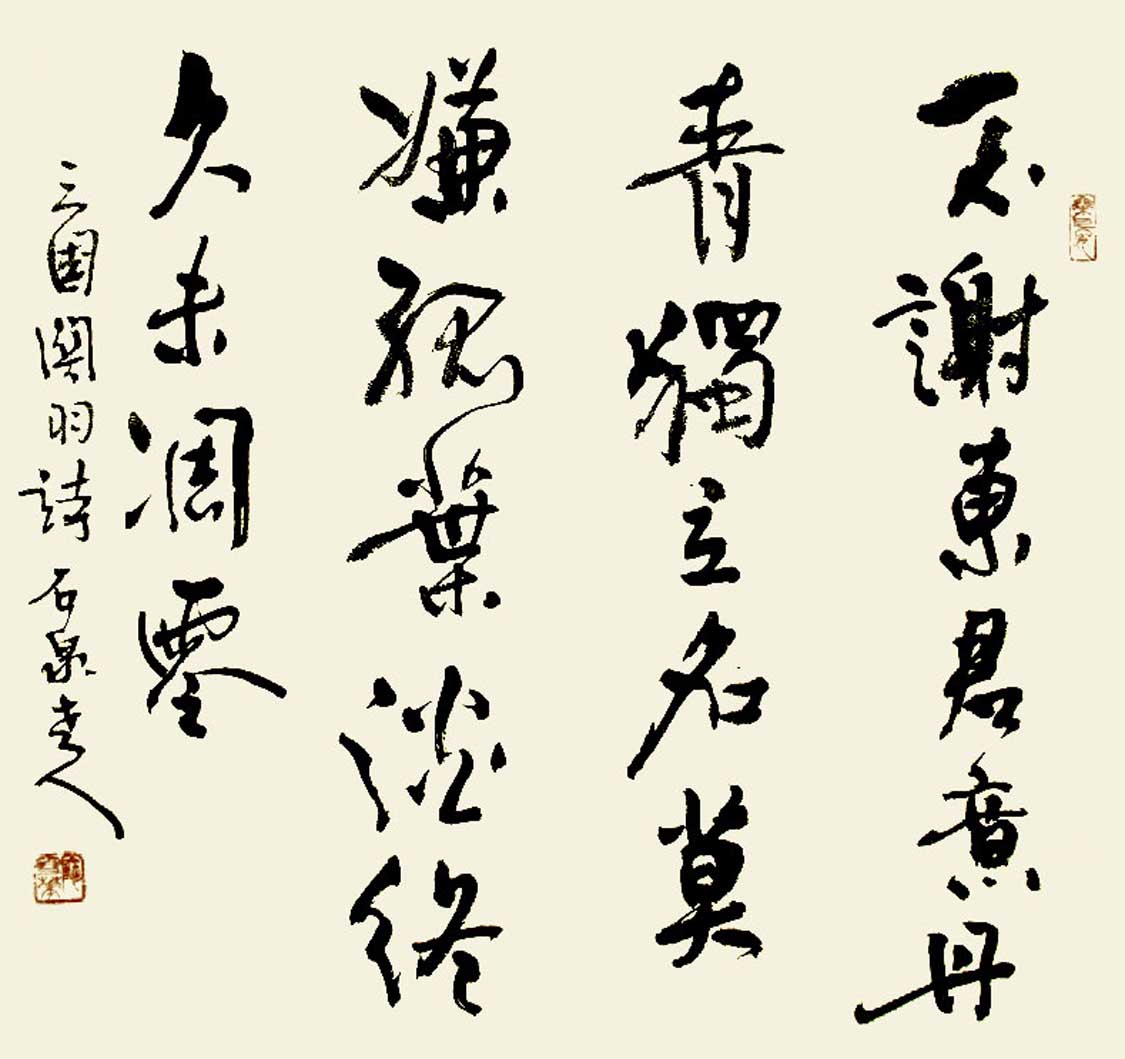 不謝東君意丹
青獨立名莫
嫌孤葉淡終
久未凋零
三國關羽詩 石泉老人